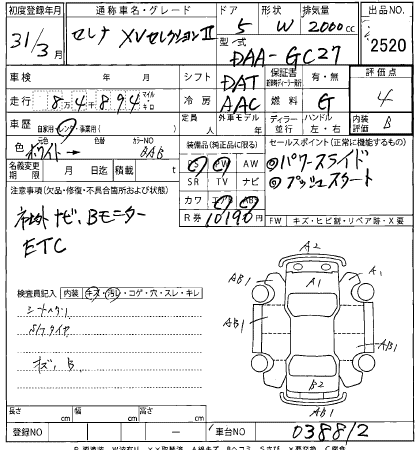 初度登録年月 通称車名・グレード ドア 形状 排気量 出品NO.
31/3月 セレナ XVセレクションⅡ 5 W 2000cc 2520
型式 DAA-GC27
車検 シフト DAT 保証書 有・無 評価点
走行 8万4千894 マイル キロ 冷房 AAC 燃料 G 4
車歴 自家用・レンタ・事業用( ) 定員 人 外車モデル 年 ディーラー 並行 ハンドル 左・右 内装 B
色 ホワイト→ 色替 カラーNO BAB 装備品(純正品に限る) セールスポイント(正常に機能するもの)
名義変更期限 月 日迄 積載量 t PS PW AW ◎パワースライド
注意事項(欠品・修復・不具合箇所および状態) SR TV ナビ ◎プッシュスタート
カワ エアB ABS
社外ナビ.Bモニター R券 10190円 FW キズ・ヒビ割・リペア跡・X要
ETC
A2
検査員記入 内装 キズ・汚レ・コゲ・穴・スレ・キレ AB1 A1 A1
シートヘタリ
S/Tタイヤ AB1 AB1
キズ.B AB1
B2
長さ cm 幅 cm 高さ cm AB1
登録NO ー 車台NO 038812